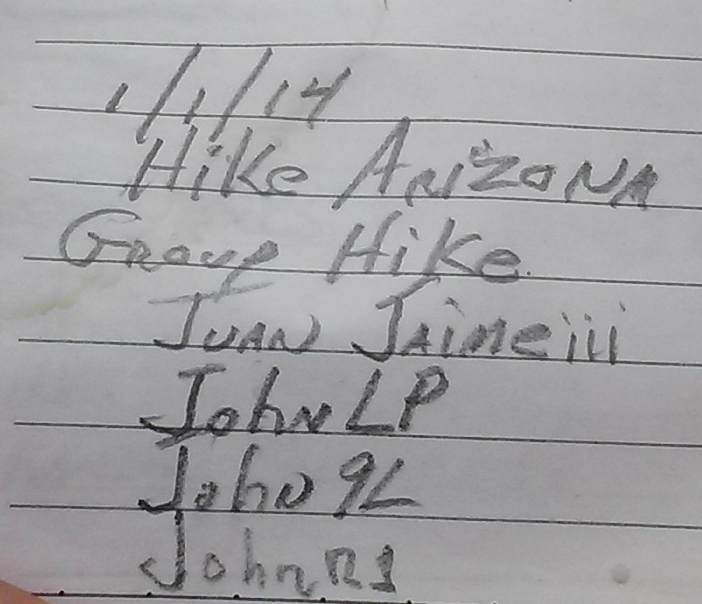 1/1/14
Hike ARIZONA
Group Hike
JUAN JAiMeiii
JohN LP
John 9L
Johnn1